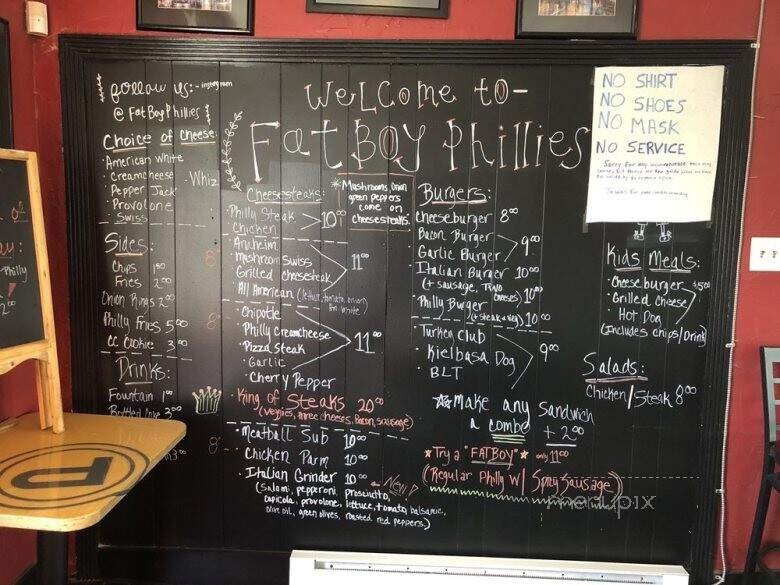 follow us: - instagram
@ FatBoyPhillies
Welcome to-
FatBoy Phillies
Choice of Cheese:
· American White
· Creamcheese
- Whiz
· Pepper Jack
· Provolone
· Swiss
Sides:
Chips 1.50
Fries 2.00
Onion Rings 2.00
Philly Fries 5.00
CC Cookie 3.00
Drinks:
Fountain 1.00
Bottled 3.00
Cheesesteaks:
*Mushrooms, onion
green peppers
come on
cheesesteaks.
· Philly Steak
Chicken
10.00
· Anaheim
· Mushroom Swiss
· Grilled Cheesesteak
· All American (lettuce, tomato, onion)
11.00
· Chipotle
· Philly Creamcheese
· Pizza Steak
· Garlic
· Cherry Pepper
11.00
· King of Steaks 20.00
(veggies, three cheeses, Bacon, sausage)
· Meatball Sub 10.00
· Chicken Parm 10.00
· Italian Grinder 10.00 - New!
(Salami, pepperoni, prosciutto,
capicola, provolone, lettuce, tomato, balsamic,
olive oil, green olives, roasted red peppers,)
Burgers:
Cheeseburger 8.00
Bacon Burger
· Garlic Burger
9.00
· Italian Burger 10.00
(+ sausage, two cheeses) 10.00
· Philly Burger
(+ steak + veg) 10.00
· Turkey Club
· Kielbasa Dog
· BLT
9.00
Make any Sandwich
a combo + 2.00
* Try a "FATBOY" * only 11.00
(Regular Philly w/ Spicy Sausage)
NO SHIRT
NO SHOES
NO MASK
NO SERVICE
Kids Meals:
· Cheeseburger
· Grilled Cheese
· Hot Dog
(Includes chips/Drink)
Salads:
Chicken/Steak 8.00
menupix